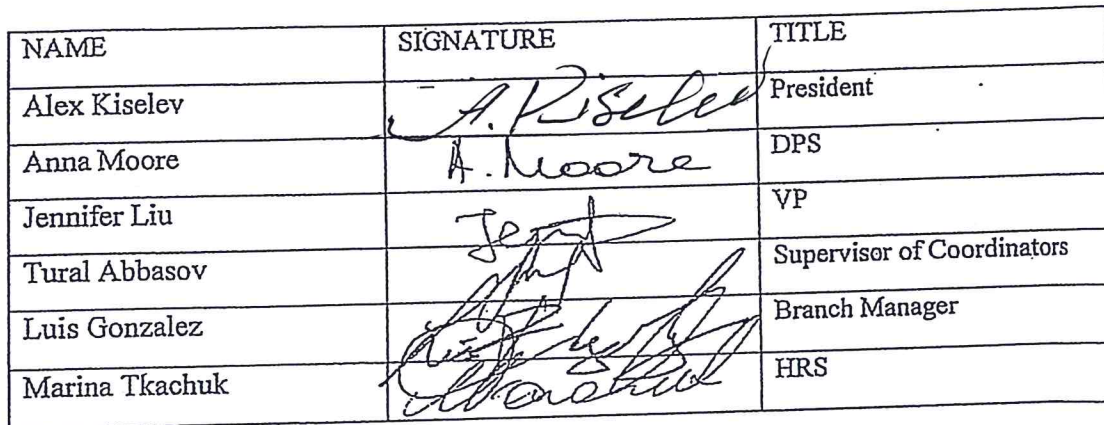 NAME SIGNATURE TITLE
Alex Kiselev A. Kiselev President
Anna Moore A. Moore DPS
Jennifer Liu VP
Tural Abbasov Supervisor of Coordinators
Luis Gonzalez Branch Manager
Marina Tkachuk HRS